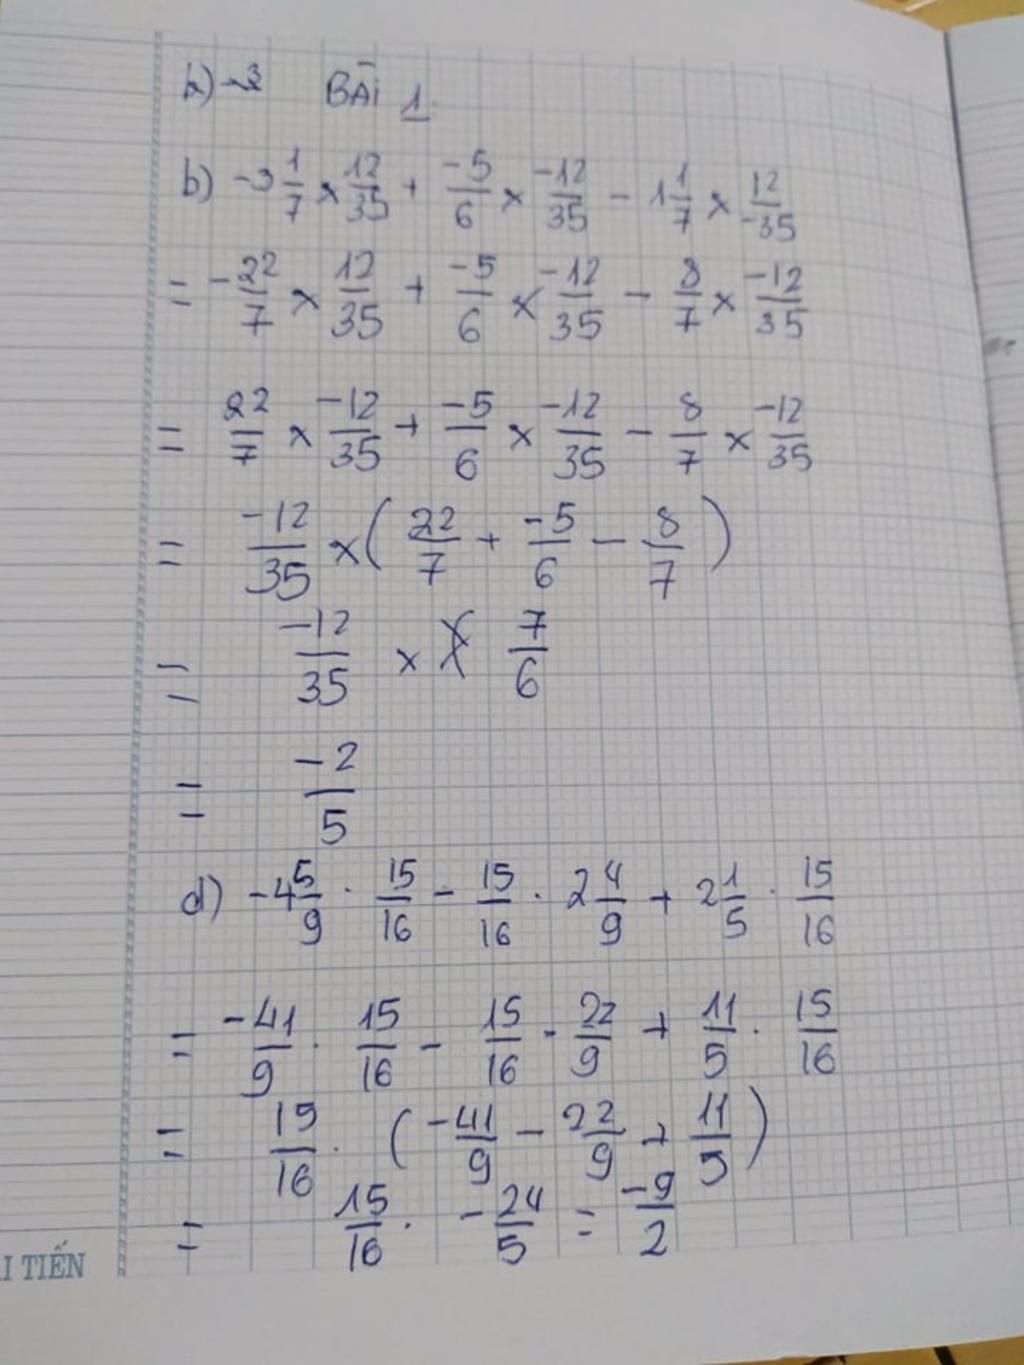 b) -3 BÀI 1.
b) -3 1/7 × 12/35 + -5/6 × -12/35 - 1 1/7 × 12/-35
= -22/7 × 12/35 + -5/6 × -12/35 - 8/7 × -12/35
= 22/7 × -12/35 + -5/6 × -12/35 - 8/7 × -12/35
= -12/35 × ( 22/7 + -5/6 - 8/7 )
= -12/35 × 7/6
= -2/5
d) -4 5/9 · 15/16 - 15/16 · 2 4/9 + 2 1/5 · 15/16
= -41/9 · 15/16 - 15/16 · 22/9 + 11/5 · 15/16
= 15/16 · ( -41/9 - 22/9 + 11/5 )
= 15/16 · -24/5 = -9/2
I TIẾN